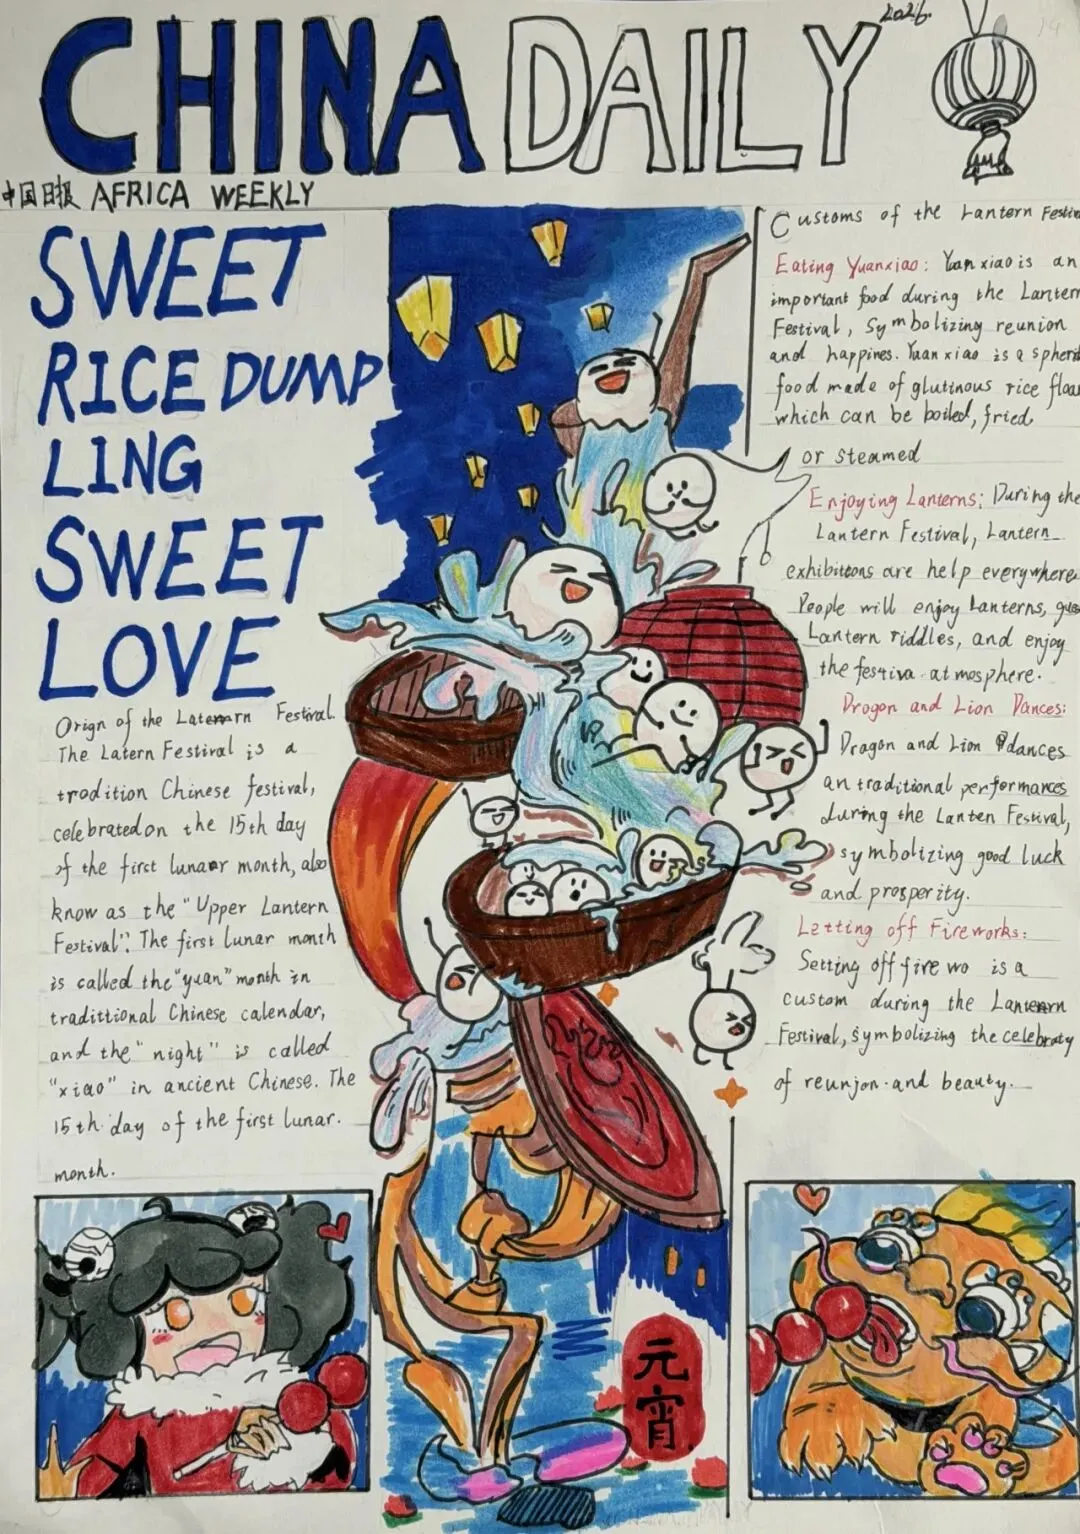 CHINA DAILY
2026.
中国日报 AFRICA WEEKLY
SWEET
RICE DUMP
LING
SWEET
LOVE
Orign of the Laternrn Festival.
The Latern Festival is a
trodition Chinese festival,
celebrated on the 15th day
of the first lunaar month, also
know as the "Upper Lantern
Festival". The first lunar month
is called the "yuan" month in
tradittional Chinese calendar,
and the "night" is called
"xiao" in ancient Chinese. The
15th day of the first lunar.
month.
Customs of the Lantern Festiv
Eating Yuanxiao: Yuanxiao is an
important food during the Lantern
Festival, Symbolizing reunion
and happines. Yuanxiao is a spheri
food made of glutinous rice flou
which can be boiled, fried
or steamed
Enjoying Lanterns: During the
Lantern Festival, Lantern
exhibitions are help everywhere
People will enjoy Lanterns, gues
Lantern riddles, and enjoy
the festiva atmosphere.
Drogon and Lion Dances:
Dragon and Lion dances
an traditional performances
during the Lanten Festival,
symbolizing good luck
and prosperity.
Letting off Fireworks:
Setting off fire wo is a
custom during the Lanternrn
Festival, symbolizing the celebraty
of reunjon and beauty.
元宵